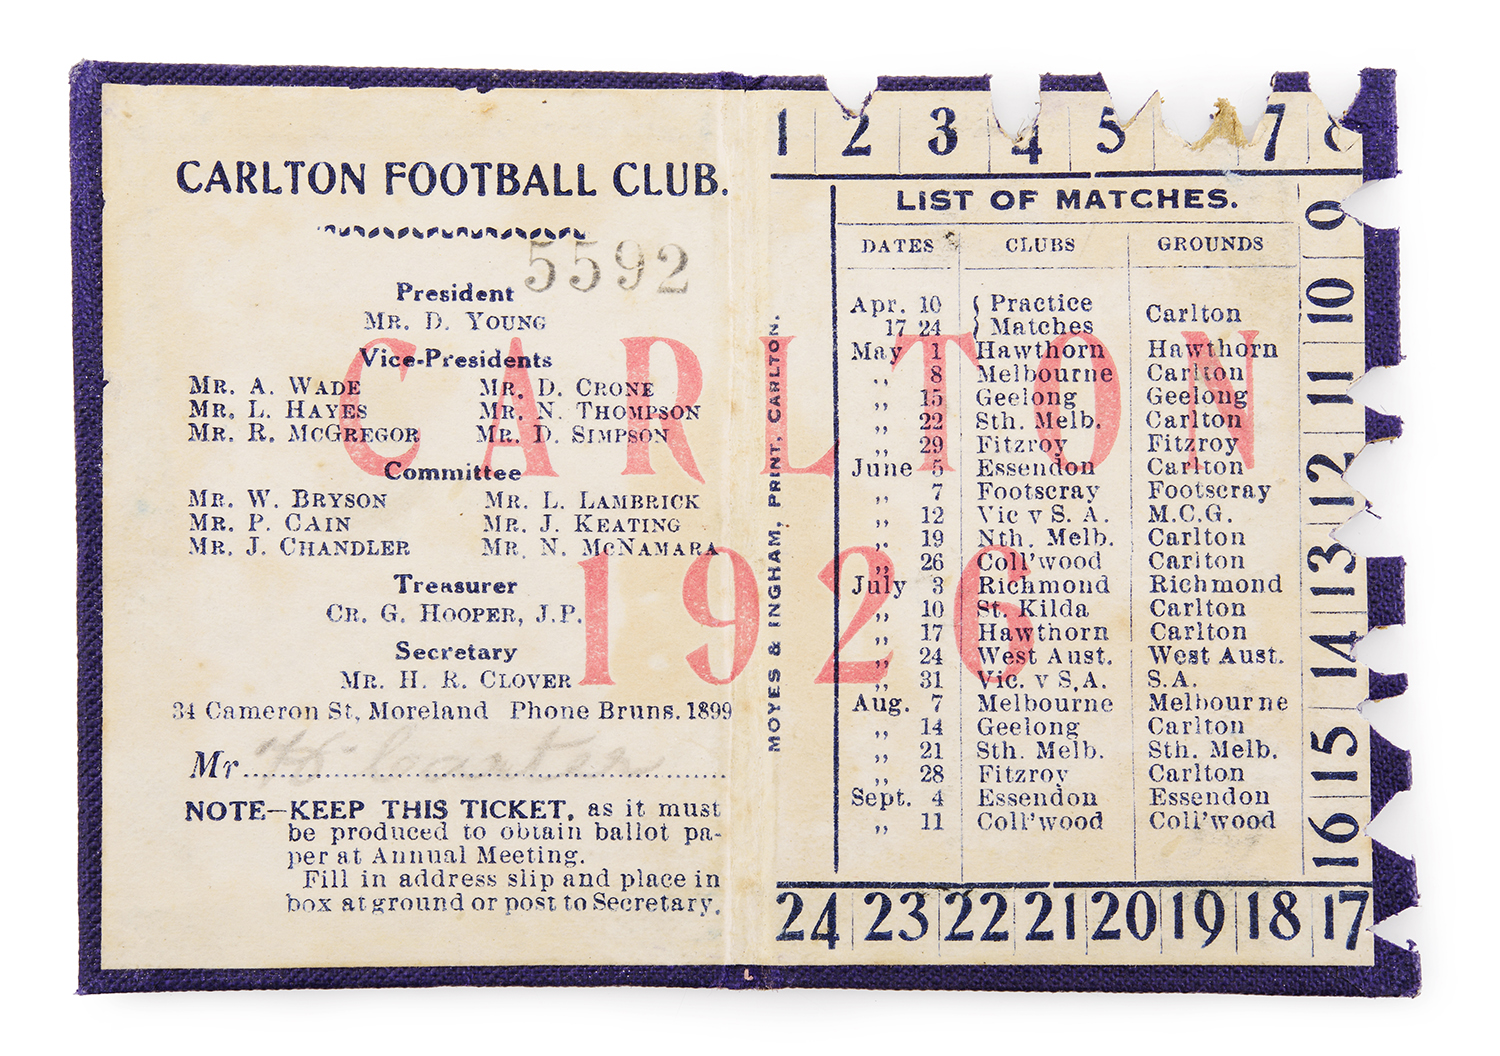 CARLTON FOOTBALL CLUB.
5592
President
MR. D. YOUNG
Vice-Presidents
MR. A. WADE MR. D. CRONE
MR, L. HAYES MR. N. THOMPSON
MR. R. MCGREGOR MR. D. SIMPSON
Committee
MR. W. BRYSON MR. L. LAMBRICK
MR. P. CAIN MR. J. KEATING
MR. J. CHANDLER MR. N. MCNAMARA
Treasurer
CR. G. HOOPER, J.P.
Secretary
MR. H. R. CLOVER
34 Cameron St, Moreland Phone Bruns. 1899
Mr H.
NOTE—KEEP THIS TICKET, as it must
be produced to obtain ballot pa-
per at Annual Meeting.
Fill in address slip and place in
box at ground or post to Secretary.
CARLTON
1926
MOYES & INGHAM, PRINT, CARLTON.
1 2 3 4 5 7 8
LIST OF MATCHES.
DATES CLUBS GROUNDS
Apr. 10 { Practice Carlton
17 24 } Matches
May 1 Hawthorn Hawthorn
,, 8 Melbourne Carlton
,, 15 Geelong Geelong
,, 22 Sth. Melb. Carlton
,, 29 Fitzroy Fitzroy
June 5 Essendon Carlton
,, 7 Footscray Footscray
,, 12 Vic v S. A. M.C.G.
,, 19 Nth. Melb. Carlton
,, 26 Coll'wood Carlton
July 3 Richmond Richmond
,, 10 St. Kilda Carlton
,, 17 Hawthorn Carlton
,, 24 West Aust. West Aust.
,, 31 Vic. v S.A. S.A.
Aug. 7 Melbourne Melbourne
,, 14 Geelong Carlton
,, 21 Sth. Melb. Sth. Melb.
,, 28 Fitzroy Carlton
Sept. 4 Essendon Essendon
,, 11 Coll'wood Coll'wood
9
10
11
12
13
14
15
16
24 23 22 21 20 19 18 17